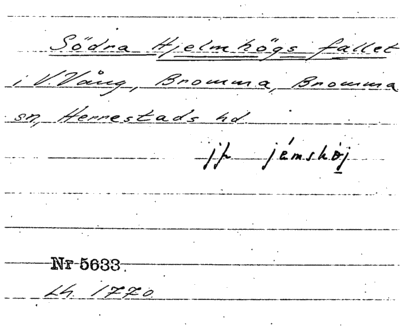 Södra Hjelmhögs fallet
i V Vång, Bromma, Bromma
sn, Herrestads hd
jf jémshöj
Nr 5633.
Lh. 1770